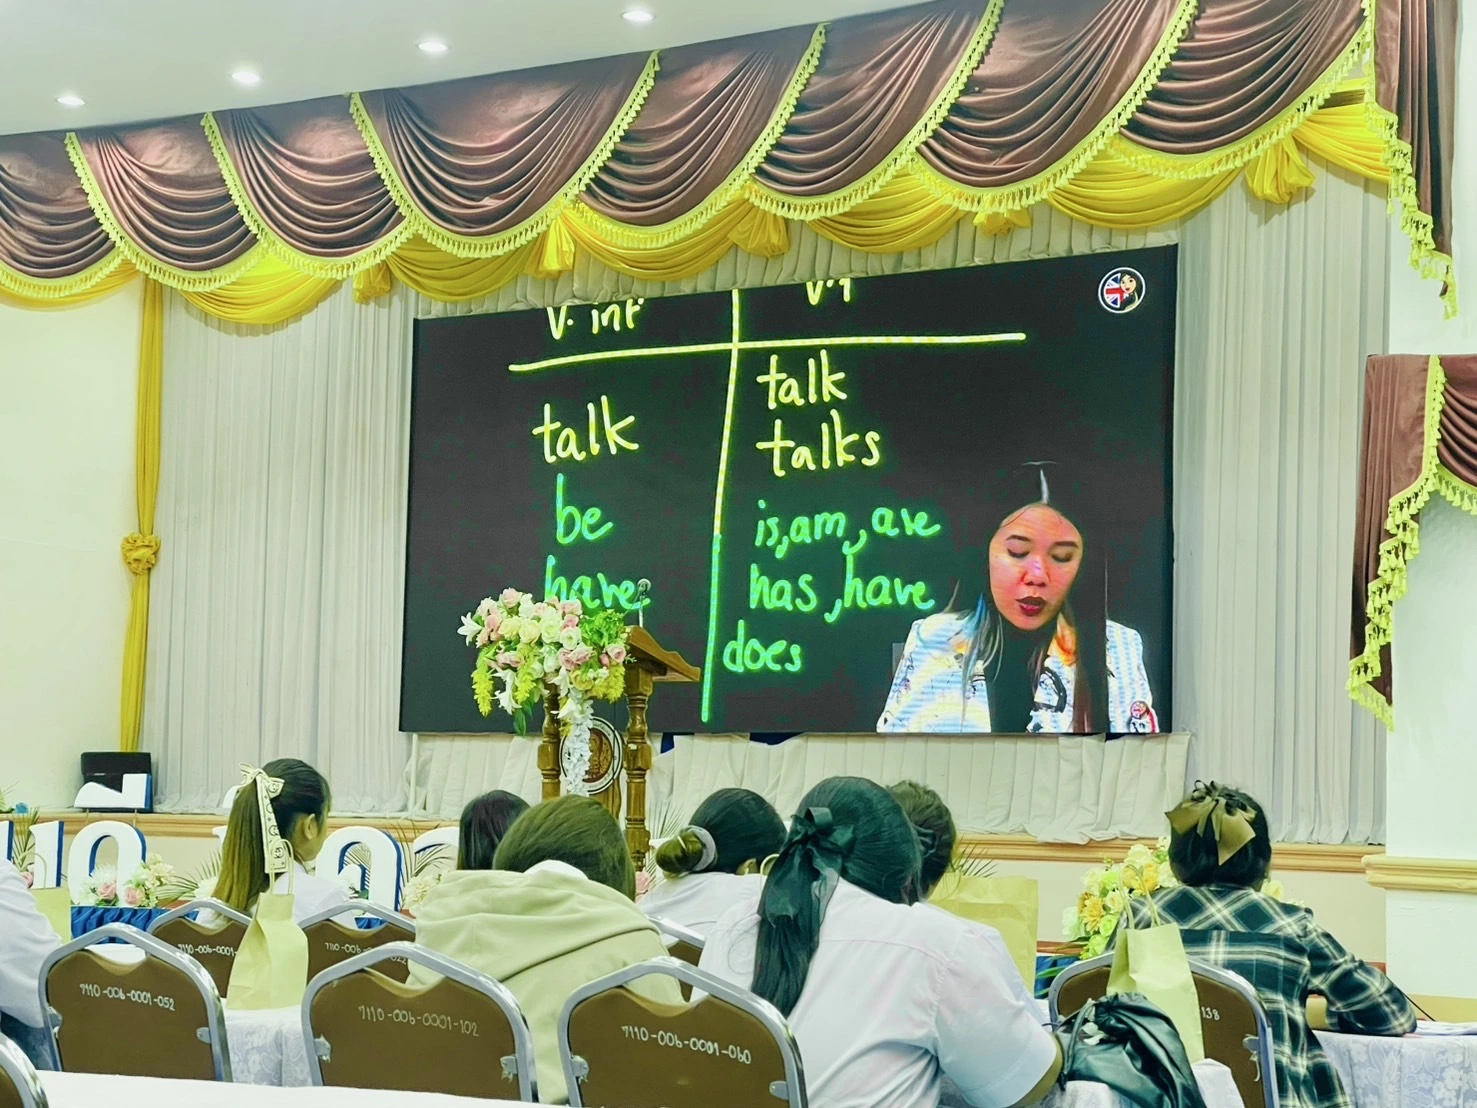 V. inf V.1
talk talk
talks
be is, am, are
have has, have
does
110
7110-006-0001-052
7110-006-0001-102
7110-006-0001-060